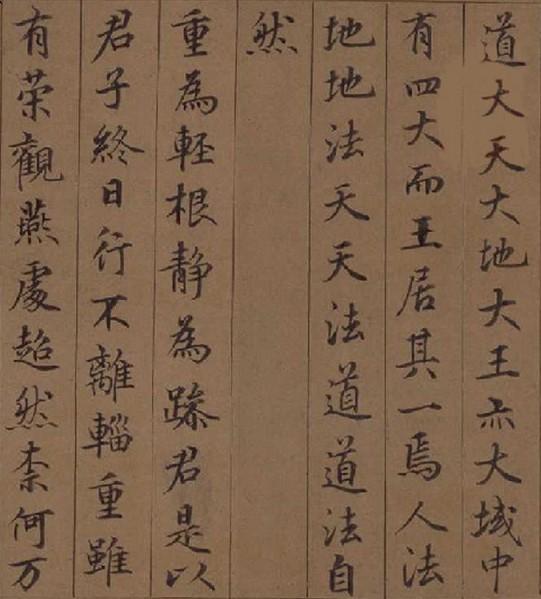 道大天大地大王亦大域中
有四大而王居其一焉人法
地地法天天法道道法自
然
重為輕根静為躁君是以
君子終日行不離輜重雖
有荣觀燕處超然柰何万